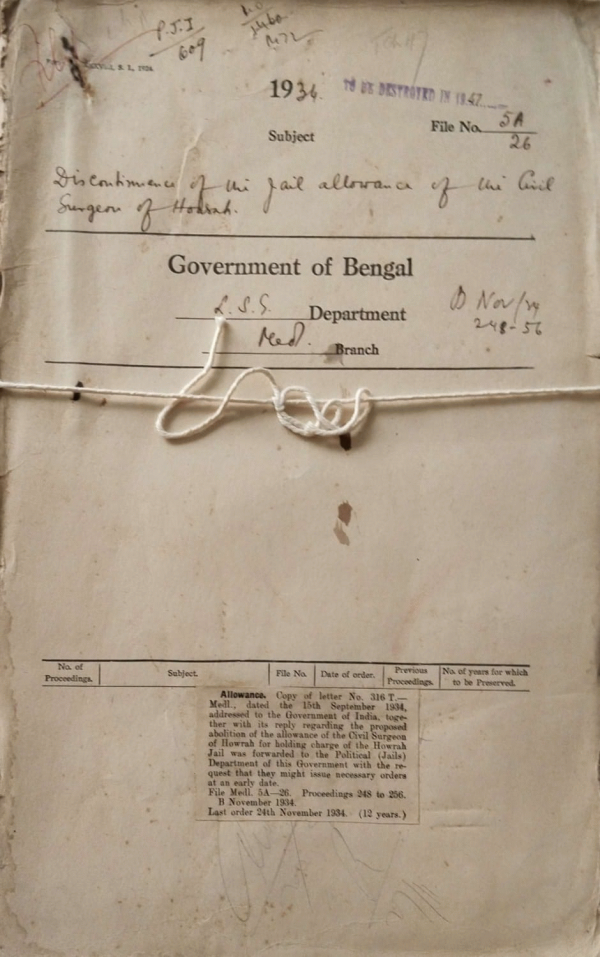 P.J.I
609
1934.
TO BE DESTROYED IN 1947
File No. 5A
26
Subject
Discontinuence of the Jail allowance of the Civil
Surgeon of Howrah.
Government of Bengal
L. S. G. Department
Med. Branch
B Nov/34
248-56
No. of Proceedings. Subject. File No. Date of order. Previous Proceedings. No. of years for which to be Preserved.
Allowance. Copy of letter No. 316 T.—
Medl., dated the 15th September 1934,
addressed to the Government of India, toge-
ther with its reply regarding the proposed
abolition of the allowance of the Civil Surgeon
of Howrah for holding charge of the Howrah
Jail was forwarded to the Political (Jails)
Department of this Government with the re-
quest that they might issue necessary orders
at an early date.
File Medl. 5A—26. Proceedings 248 to 256.
B November 1934.
Last order 24th November 1934. (12 years.)